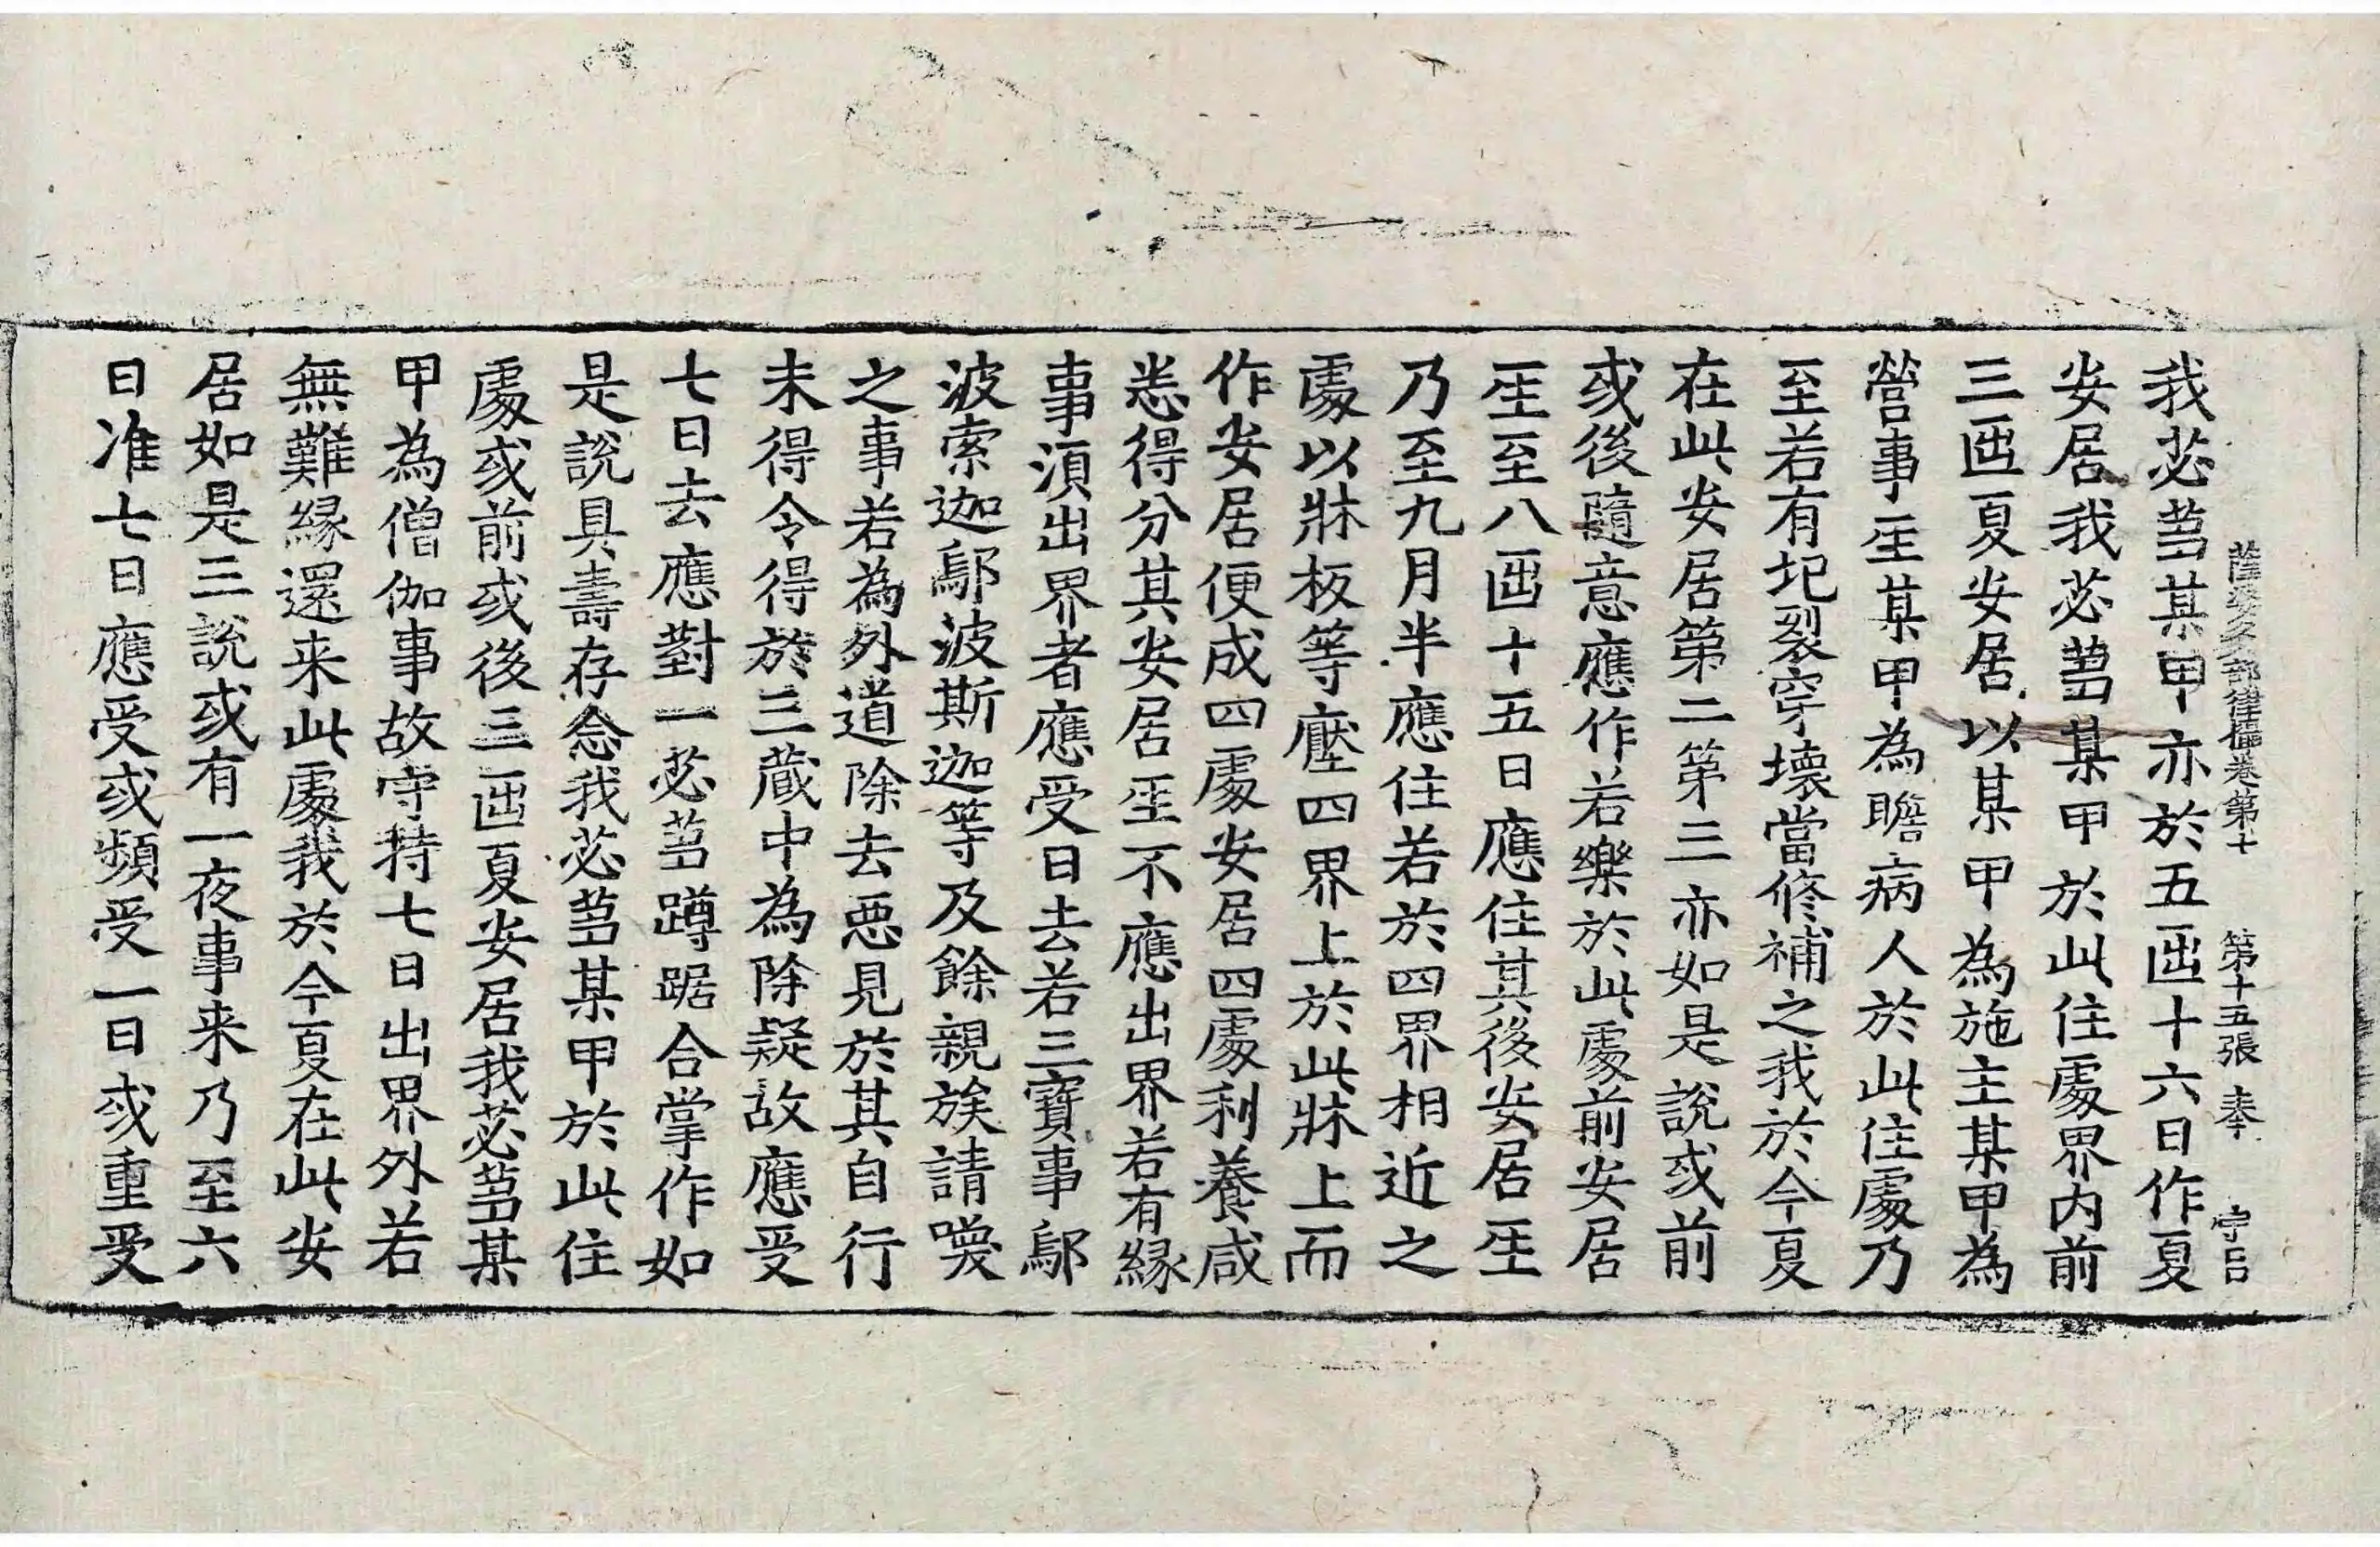 薩婆多部律攝卷第十 第十五張 奉
我苾蒭某甲亦於五𠥱十六日作夏
安居我苾蒭某甲於此住處界内前
三𠥱夏安居以某甲為施主某甲為
營事𤯔某甲為瞻病人於此住處乃
至若有圮裂穿壞當修補之我於今夏
在此安居第二第三亦如是說或前
或後隨意應作若樂於此處前安居
𤯔至八𠥱十五日應住其後安居𤯔
乃至九月半應住若於四界相近之
處以牀板等壓四界上於此牀上而
作安居便成四處安居四處利養咸
悉得分其安居𤯔不應出界若有縁
事湏出界者應受日去若三寶事鄔
波索迦鄔波斯迦等及餘親族請喚
之事若為外道除去惡見於其自行
未得令得於三蔵中為除疑故應受
七日去應對一苾蒭蹲踞合掌作如
是說具壽存念我苾蒭某甲於此住
處或前或後三𠥱夏安居我苾蒭某
甲為僧伽事故守持七日出界外若
無難縁還来此處我於今夏在此安
居如是三說或有一夜事来乃至六
日准七日應受或頻受一日或重受